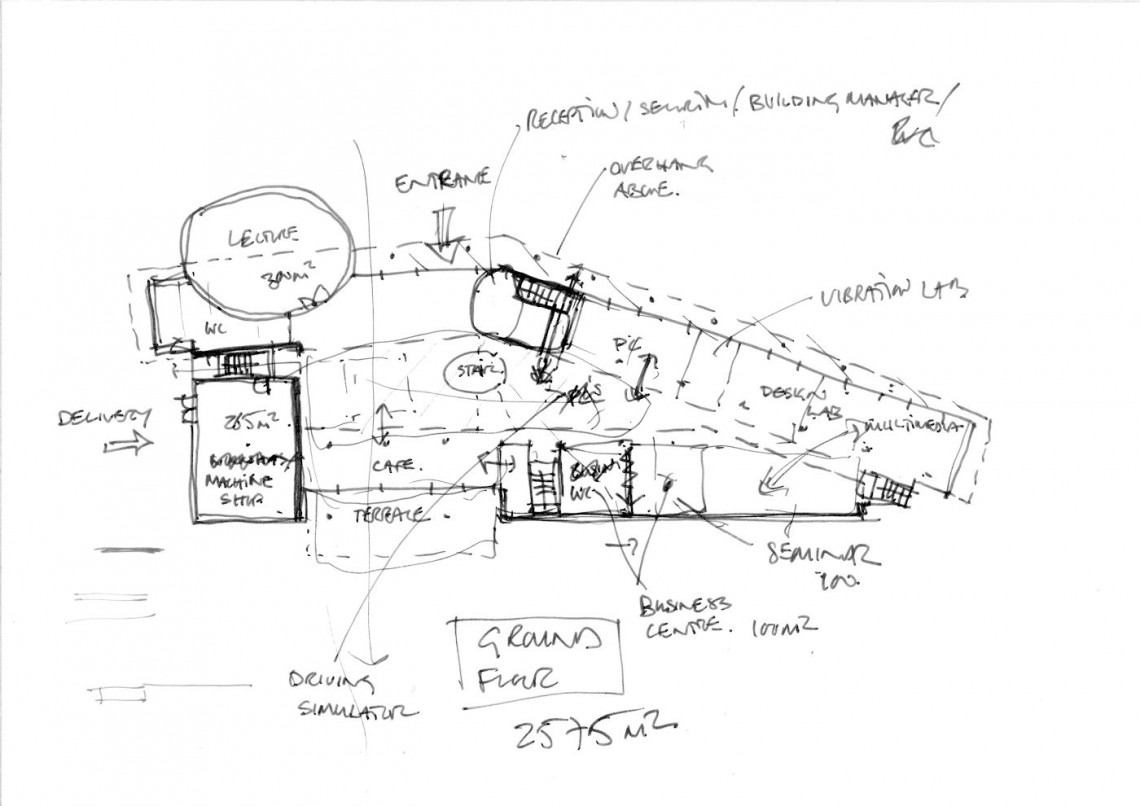 RECEPTION / SECURITY / BUILDING MANAGER /
OVERHANG
ABOVE.
ENTRANCE
LECTURE
300m²
VIBRATION LAB
WC
P/C
STAIR
DESIGN
LAB
MULTIMEDIA
DELIVERY
265m².
MACHINE
SHOP
CAFE.
WC
TERRACE
SEMINAR
100.
BUSINESS
CENTRE. 100M2
GROUND
FLOOR
DRIVING
SIMULATOR
2575M2